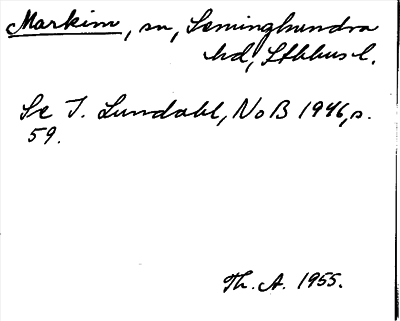 Markim, sn, Seminghundra
hd, Sthlms l.
Se I. Lundahl, NoB 1946, s.
59.
Th. A. 1955.